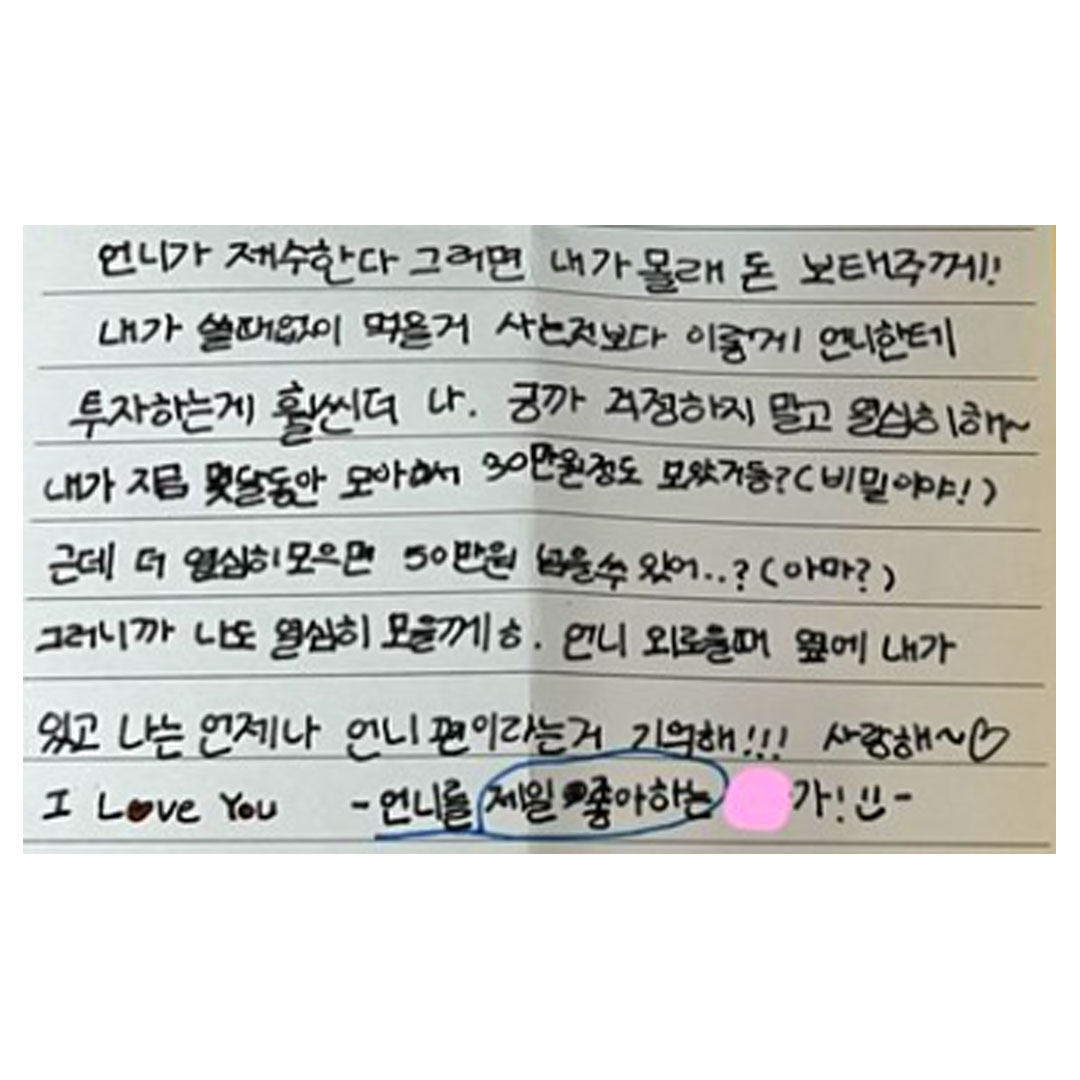 언니가 제수한다 그러면 내가 몰래 돈 보태주께!
내가 쓸때없이 먹을거 사는것보다 이렇게 언니한테
투자하는게 훨씬더 나. 긍까 걱정하지 말고 열심히해~
내가 지금 몇달동안 모아서 30만원정도 모았거등?(비밀이야!)
근데 더 열심히모으면 50만원 넘을수 있어..?(아마?)
그러니까 나도 열심히 모을께ㅎ. 언니 외로울때 옆에 내가
있고 나는 언제나 언니 편이라는거 기억해!!! 사랑해~♡
I Love You -언니를 제일 좋아하는 가!-